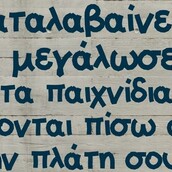 αταλαβαίνε
μεγάλωσε
τα παιχνίδια
ονται πίσω α
ην πλάτη σου